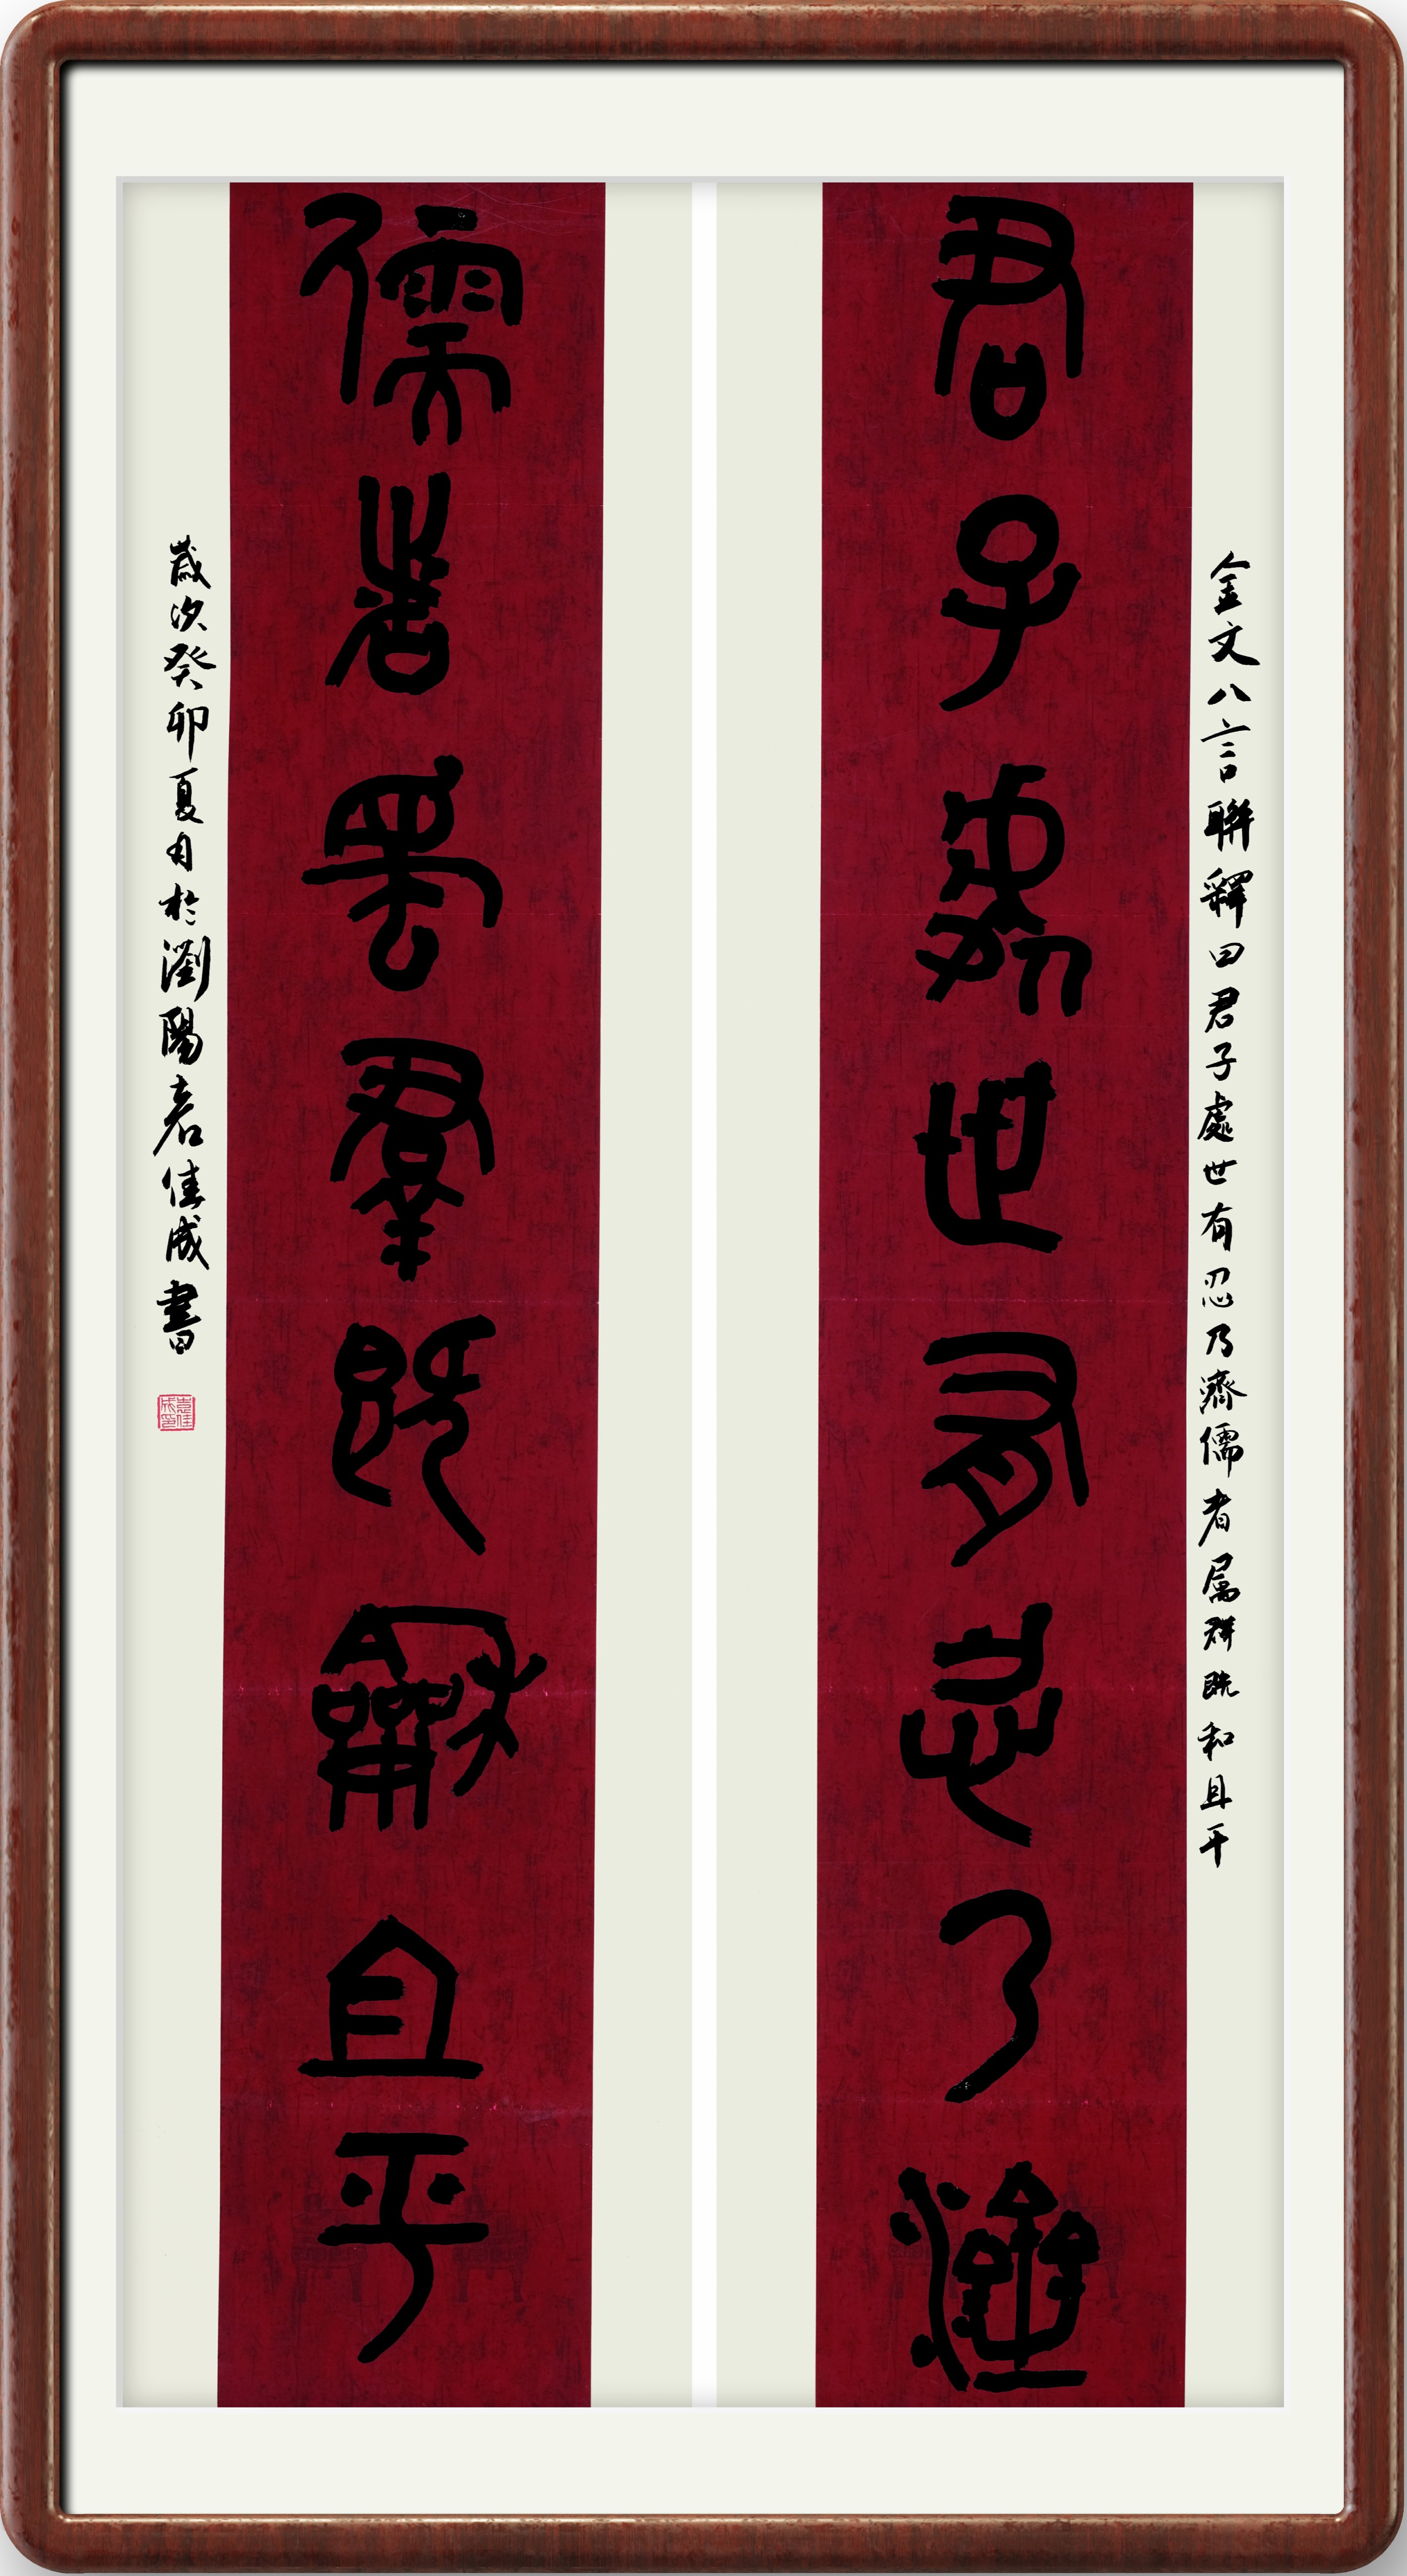 金文八言聯釋曰君子處世有忍乃濟儒者屬群既和且平
君子處世有忍乃濟
儒者屬群既和且平
歲次癸卯夏月於瀏陽袁佳成書
袁佳成印